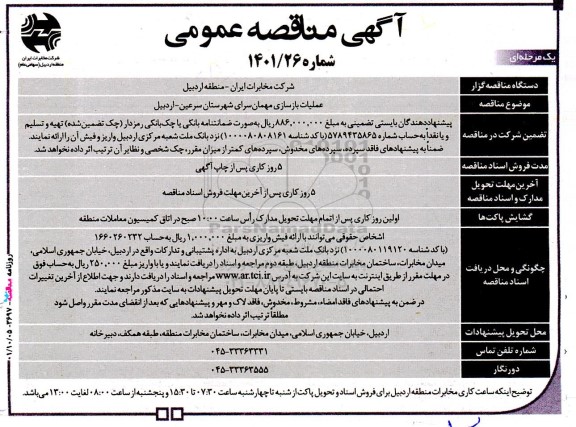 آگهی مناقصه عمومی
شماره ۱۴۰۱/۲۶
یک مرحله‌ای
شرکت مخابرات ایران
منطقه اردبیل (سهامی عام)
دستگاه مناقصه گزار
شرکت مخابرات ایران - منطقه اردبیل
موضوع مناقصه
عملیات بازسازی مهمان سرای شهرستان سرعین - اردبیل
تضمین شرکت در مناقصه
پیشنهاددهندگان بایستی تضمینی به مبلغ ۸۸۶,۰۰۰,۰۰۰ ریال به صورت ضمانتنامه بانکی یا چک بانکی رمزدار (چک تضمین شده) تهیه و تسلیم
و یا نقداً به حساب شماره ۵۷۸۹۴۳۵۸۶۵ (با کد شناسه ۱۰۰۰۰۸۰۸۰۸۱۶۱) نزد بانک ملت شعبه مرکزی اردبیل واریز و فیش آن را ارائه نمایند.
ضمناً به پیشنهادهای فاقد سپرده، سپرده‌های مخدوش، سپرده‌های کمتر از میزان مقرر، چک شخصی و نظایر آن ترتیب اثر داده نخواهد شد.
مدت فروش اسناد مناقصه
۵ روز کاری پس از چاپ آگهی
آخرین مهلت تحویل
مدارک و اسناد مناقصه
۵ روز کاری پس از آخرین مهلت فروش اسناد مناقصه
گشایش پاکت‌ها
اولین روز کاری پس از اتمام مهلت تحویل مدارک رأس ساعت ۱۰:۰۰ صبح در اتاق کمیسیون معاملات منطقه
چگونگی و محل دریافت
اسناد مناقصه
اشخاص حقوقی می‌توانند با ارائه فیش واریزی به مبلغ ۱,۰۰۰,۰۰۰ ریال به حساب ۱۶۶۰۲۶۰۲۳۲
(با کد شناسه ۱۰۰۰۰۸۰۱۱۹۱۲۰) نزد بانک ملت شعبه مرکزی اردبیل به اداره پشتیبانی و تدارکات واقع در اردبیل، خیابان جمهوری اسلامی،
میدان مخابرات، ساختمان مخابرات منطقه اردبیل، طبقه دوم مراجعه و اسناد را دریافت نمایند و یا با واریز مبلغ ۲۵۰,۰۰۰ ریال به حساب فوق
در مهلت مقرر از طریق اینترنت به سایت این شرکت به آدرس www.ar.tci.ir مراجعه و اسناد را دریافت دارند و جهت اطلاع از آخرین تغییرات
احتمالی در اسناد مناقصه بایستی تا پایان مهلت تحویل پیشنهادات به سایت مذکور مراجعه نمایند.
در ضمن به پیشنهادهای فاقد امضاء، مشروط، مخدوش، فاقد لاک و مهر و پیشنهادهایی که بعد از انقضای مدت مقرر واصل شود
مطلقاً ترتیب اثر داده نخواهد شد.
محل تحویل پیشنهادات
اردبیل، خیابان جمهوری اسلامی، میدان مخابرات، ساختمان مخابرات منطقه، طبقه همکف، دبیرخانه
شماره تلفن تماس
۰۴۵-۳۳۳۶۳۳۳۱
دورنگار
۰۴۵-۳۳۳۶۳۵۵۵
توضیح اینکه ساعت کاری مخابرات منطقه اردبیل برای فروش اسناد و تحویل پاکت از شنبه تا چهارشنبه ساعت ۰۷:۳۰ تا ۱۵:۳۰ و پنجشنبه از ساعت ۰۸:۰۰ لغایت ۱۳:۰۰ می‌باشد.
روزنامه مناقصه ۳۶۹۷ - ۰۱/۱۰/۰۵